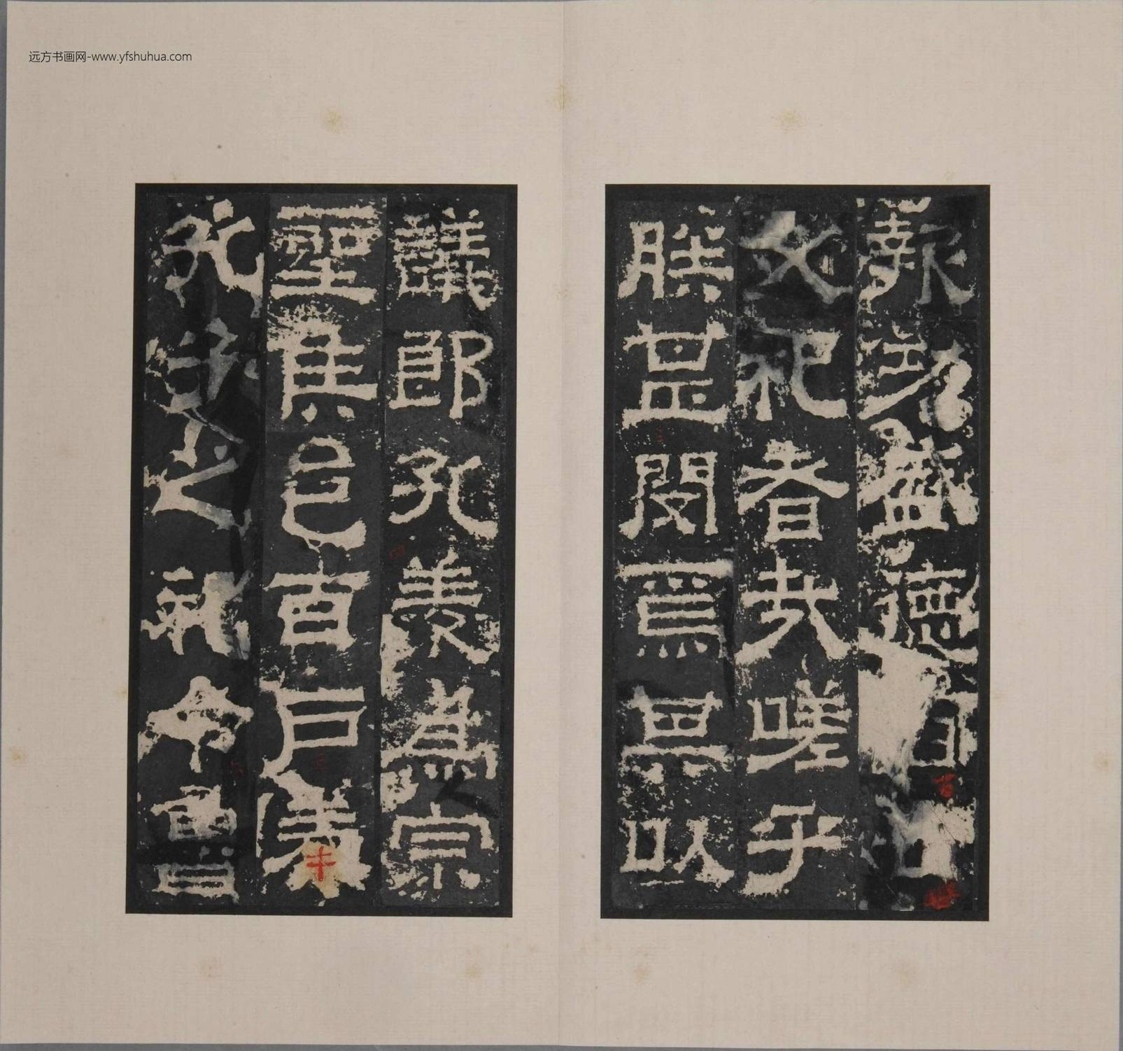 远方书画网-www.yfshuhua.com
報功盛德百世
必祀者哉嗟乎
朕甚閔焉其以
議郎孔羨為宗
聖侯邑百戶奉
孔子之祀令魯